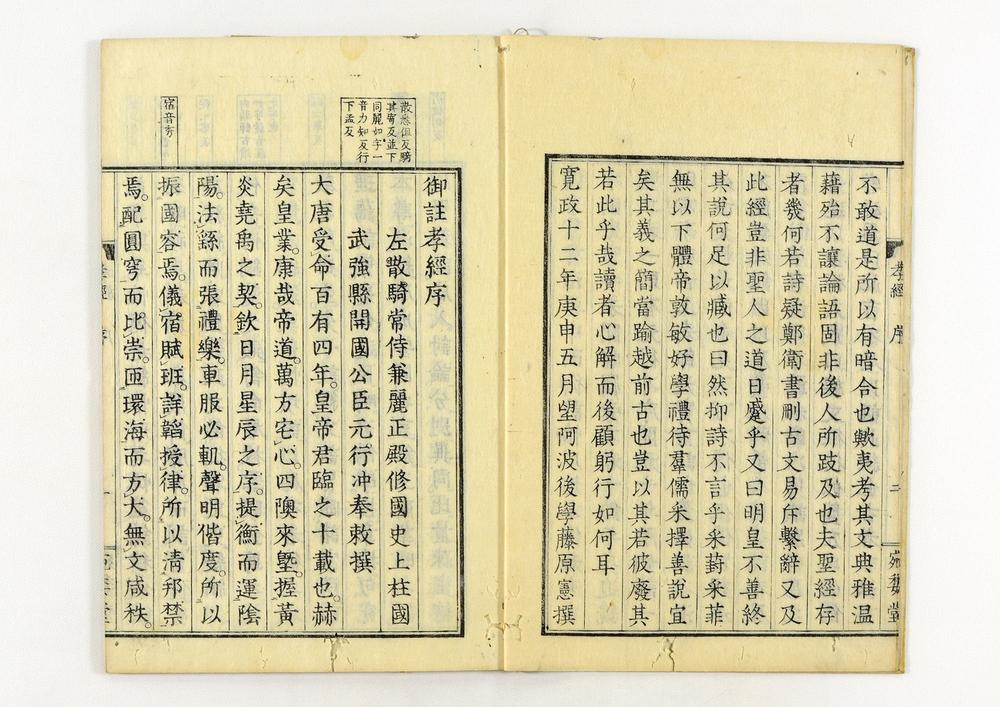 不敢道是所以有暗合也歟夷考其文典雅温
藉殆不讓論語固非後人所跂及也夫聖經存
者幾何若詩疑鄭衛書刪古文易斥繫辭又及
此經豈非聖人之道日蹙乎又曰明皇不善終
其說何足以臧也曰然抑詩不言乎采葑采菲
無以下體帝敦敏好學禮待羣儒采擇善說宜
矣其義之簡當踰越前古也豈以其若彼廢其
若此乎哉讀者心解而後顧躬行如何耳
寛政十二年庚申五月望阿波後學藤原憲撰
孝經 序
二
宛委堂
散悉但反騎
其寄反並下
同麗如字一
音力知反行
下孟反
宿音秀
御註孝經序
左散騎常侍兼麗正殿修國史上柱國
武強縣開國公臣元行冲奉敕撰
大唐受命百有四年。皇帝君臨之十載也。赫
矣皇業。康哉帝道。萬方宅心。四隩來墍。握黃
炎堯禹之契。欽日月星辰之序。提衡而運陰
陽。法繇而張禮樂。車服必軌。聲明偕度。所以
振國容焉。儀宿賦班。詳韜授律。所以清邦禁
焉。配圓穹而比崇。匝環海而方大。無文咸秩。
孝經 序
一
宛委堂